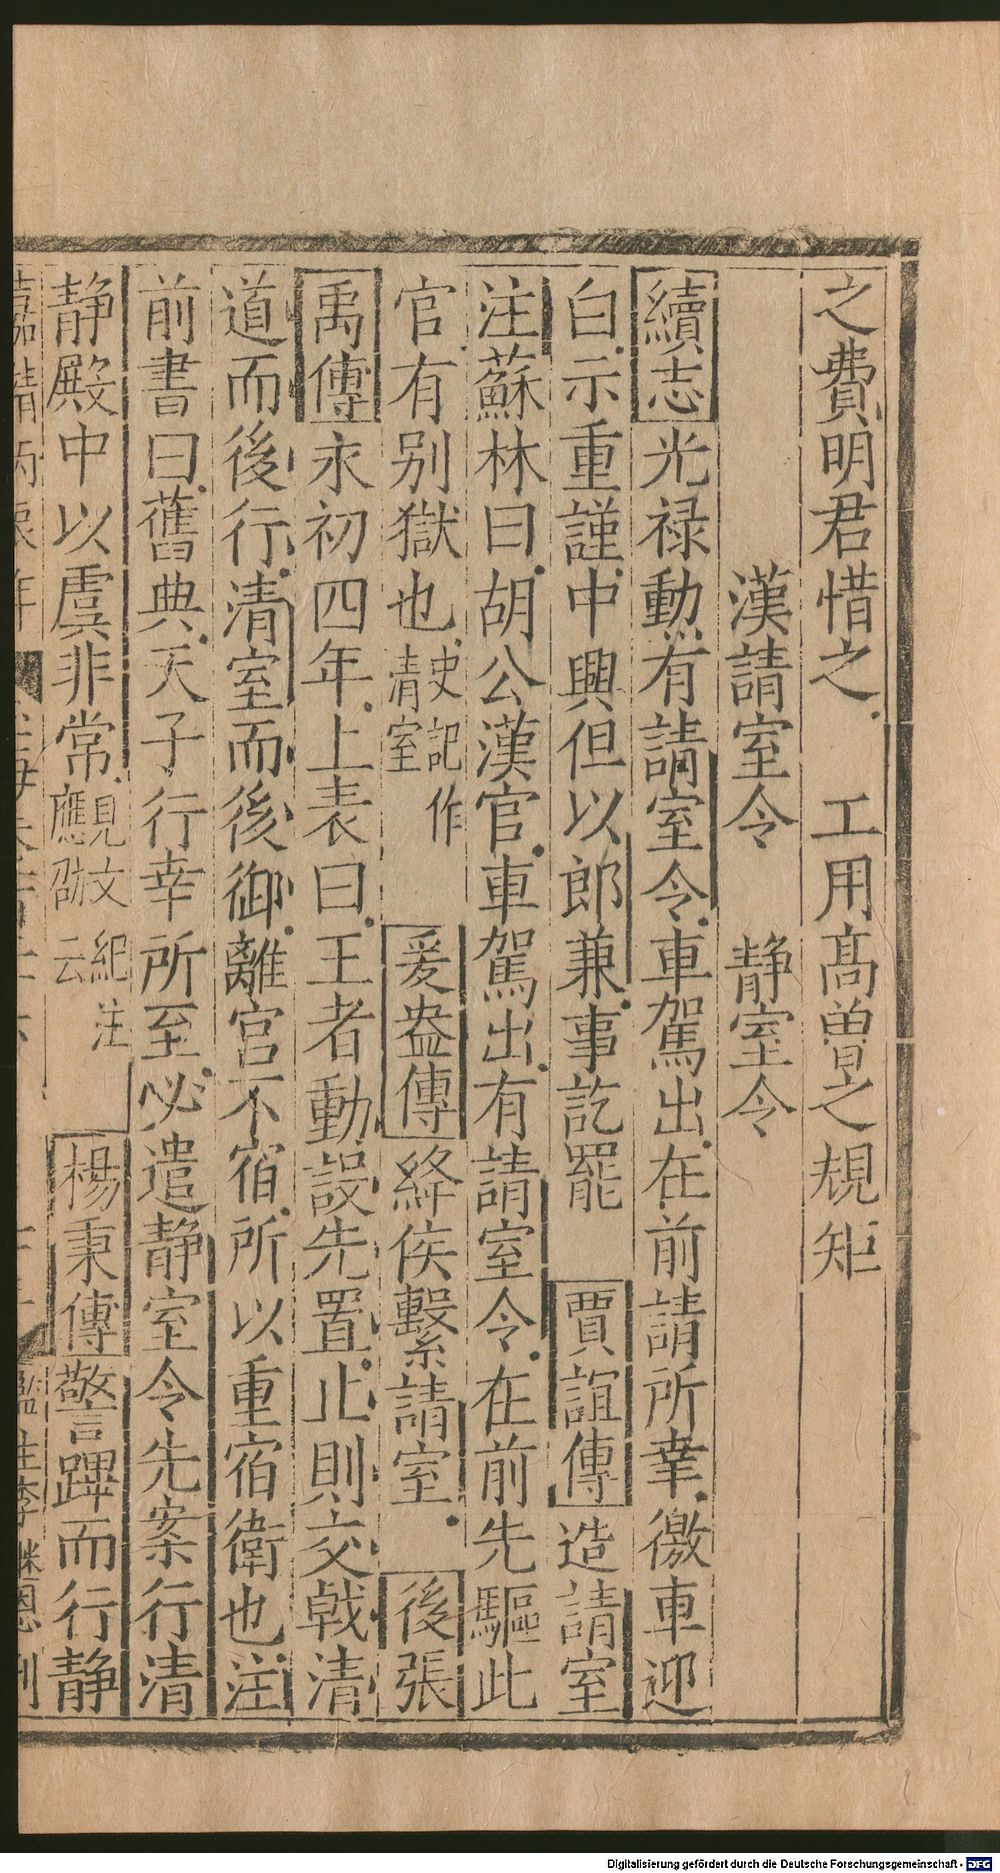 之費明君惜之　工用高曾之規矩
漢請室令　靜室令
續志光禄勳有請室令車駕出在前請所幸徼車迎
白示重謹中興但以郎兼事訖罷　賈誼傳造請室
注蘇林曰胡公漢官車駕出有請室令在前先驅此
官有别獄也史記作清室　爰盎傳絳侯繫請室　後張
禹傳永初四年上表曰王者動設先置止則交戟清
道而後行清室而後御離宫不宿所以重宿衛也注
前書曰舊典天子行幸所至必遣靜室令先案行清
靜殿中以虞非常見文紀注應劭云　楊秉傳警蹕而行靜
監生李継恩刊
Digitalisierung gefördert durch die Deutsche Forschungsgemeinschaft - DFG